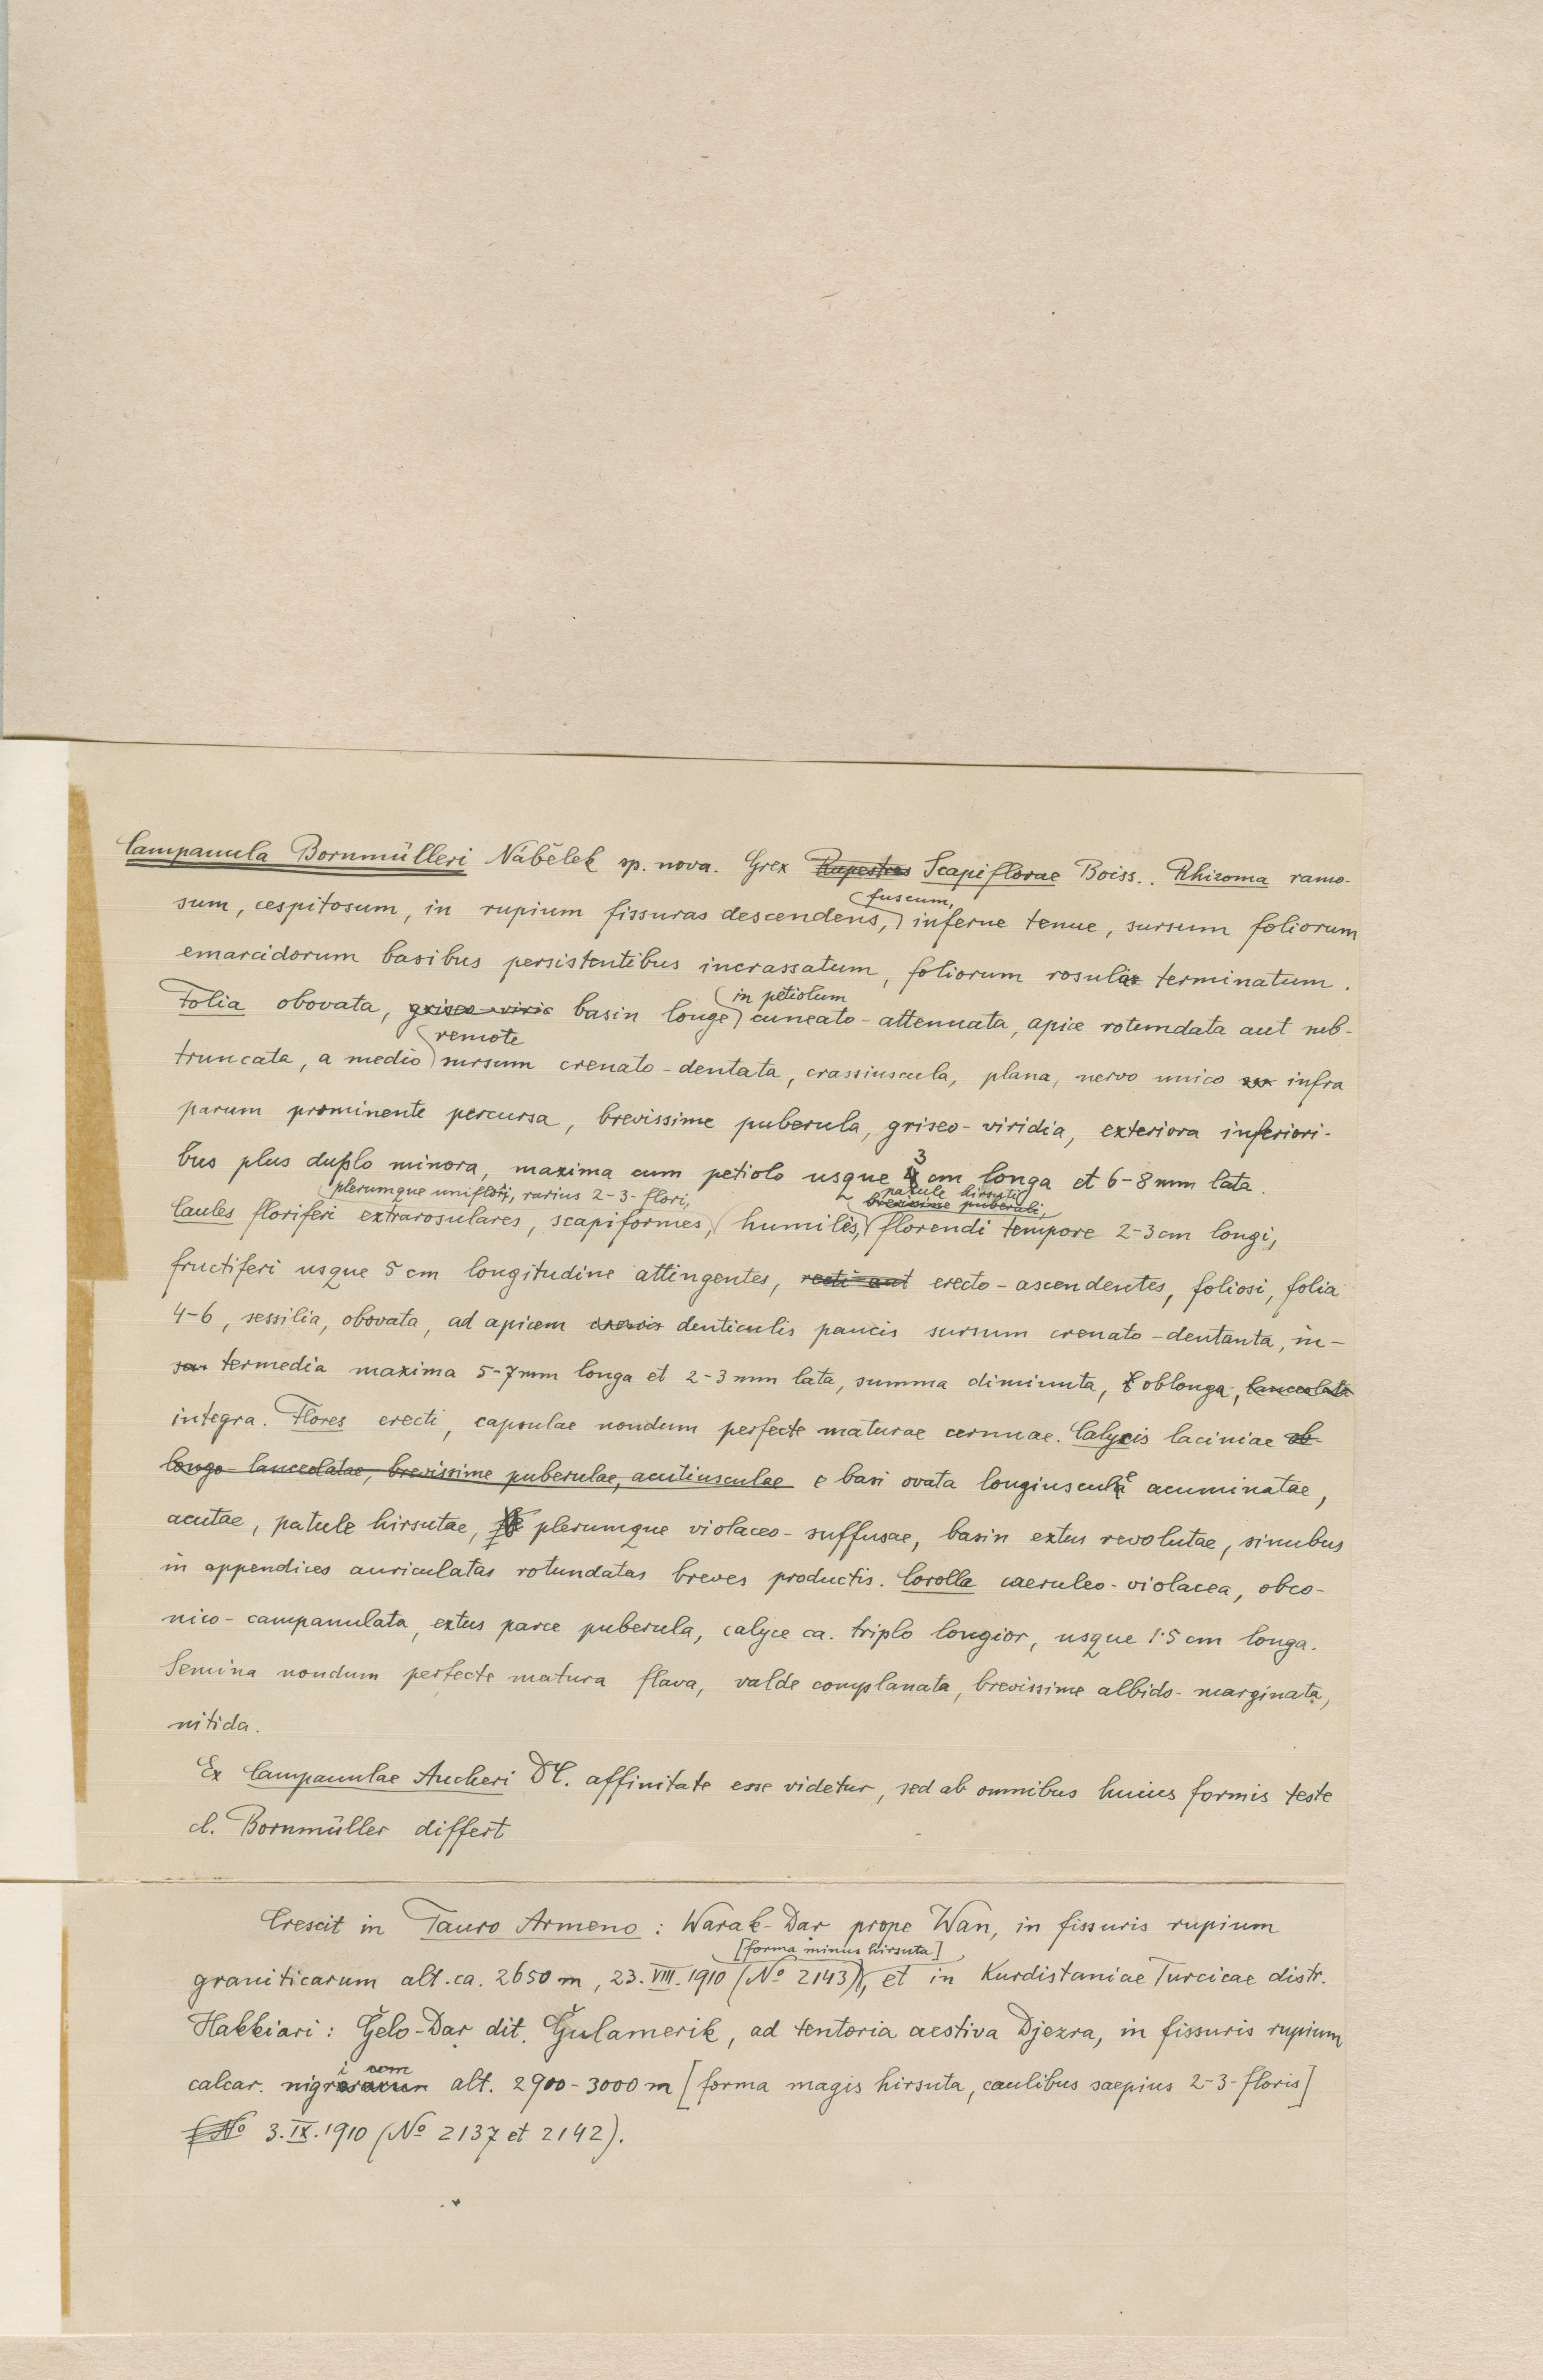 Campanula Bornmülleri Nábělek sp. nova. Grex Rupestres Scapiflorae Boiss.. Rhizoma ramo-
fuscum,
sum, cespitosum, in rupium fissuras descendens, inferne tenue, sursum foliorum
emarcidorum basibus persistentibus incrassatum, foliorum rosula terminatum.
in petiolum
Folia obovata, griseo-viri basin longe cuneato-attenuata, apice rotundata aut sub-
remote
truncata, a medio sursum crenato-dentata, crassiuscula, plana, nervo unico infra
parum prominente percursa, brevissime puberula, griseo-viridia, exteriora inferiori-
3
bus plus duplo minora, maxima cum petiolo usque 4 cm longa et 6-8 mm lata.
plerumque uniflori, rarius 2-3-flori, patule hirsuti
brevissime puberuli,
Caules floriferi extrarosulares, scapiformes, humiles, florendi tempore 2-3 cm longi,
fructiferi usque 5 cm longitudine attingentes, recti aut erecto-ascendentes, foliosi, folia
4-6, sessilia, obovata, ad apicem denticulis paucis sursum crenato-dentanta, in-
termedia maxima 5-7 mm longa et 2-3 mm lata, summa diminuta, oblonga, lanceolata
integra. Flores erecti, capsulae nondum perfecte maturae cernuae. Calycis laciniae ob-
longo-lanceolatae, brevissime puberulae, acutiusculae e basi ovata longiuscule acuminatae,
acutae, patule hirsutae, plerumque violaceo-suffusae, basin extus revolutae, sinubus
in appendices auriculatas rotundatas breves productis. Corolla caeruleo-violacea, obco-
nico-campanulata, extus parce puberula, calyce ca. triplo longior, usque 1·5 cm longa.
Semina nondum perfecte matura flava, valde complanata, brevissime albido-marginata,
nitida.
Ex Campanulae Aucheri DC. affinitate esse videtur, sed ab omnibus huius formis teste
cl. Bornmüller differt
Crescit in Tauro Armeno: Warak-Dar prope Wan, in fissuris rupium
[forma minus hirsuta]
graniticarum alt. ca. 2650 m, 23. VIII. 1910 (No 2143), et in Kurdistaniae Turcicae distr.
Hakkiari: Ǧelo-Dạr dit. Ǧulamerik, ad tentoria aestiva Djezra, in fissuris rupium
calcar. nigricom alt. 2900-3000 m [forma magis hirsuta, caulibus saepius 2-3-floris]
(No 3. IX. 1910 (No 2137 et 2142).